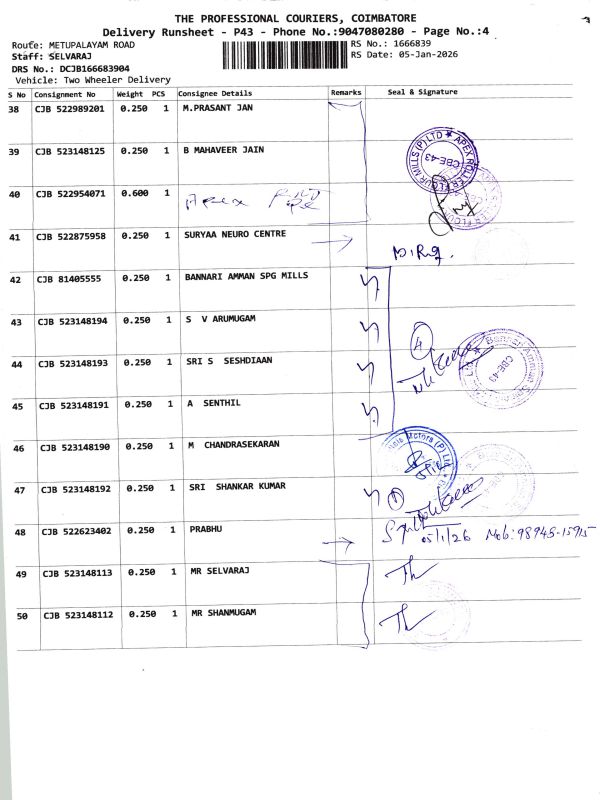 THE PROFESSIONAL COURIERS, COIMBATORE
Delivery Runsheet - P43 - Phone No.:9047080280 - Page No.:4
Route: METUPALAYAM ROAD RS No.: 1666839
Staff: SELVARAJ RS Date: 05-Jan-2026
DRS No.: DCJB166683904
Vehicle: Two Wheeler Delivery
S No Consignment No Weight PCS Consignee Details Remarks Seal & Signature
38 CJB 522989201 0.250 1 M.PRASANT JAN
39 CJB 523148125 0.250 1 B MAHAVEER JAIN
APEX ROLLER FLOUR MILLS (P) LTD ★ CBE-43
40 CJB 522954071 0.600 1 Apex
41 CJB 522875958 0.250 1 SURYAA NEURO CENTRE
42 CJB 81405555 0.250 1 BANNARI AMMAN SPG MILLS
43 CJB 523148194 0.250 1 S V ARUMUGAM
4
44 CJB 523148193 0.250 1 SRI S SESHDIAAN
CBE-43
45 CJB 523148191 0.250 1 A SENTHIL
46 CJB 523148190 0.250 1 M CHANDRASEKARAN
Motors (P) Ltd
47 CJB 523148192 0.250 1 SRI SHANKAR KUMAR
1
48 CJB 522623402 0.250 1 PRABHU
05/1/26 Mob: 98945-15915
49 CJB 523148113 0.250 1 MR SELVARAJ
50 CJB 523148112 0.250 1 MR SHANMUGAM